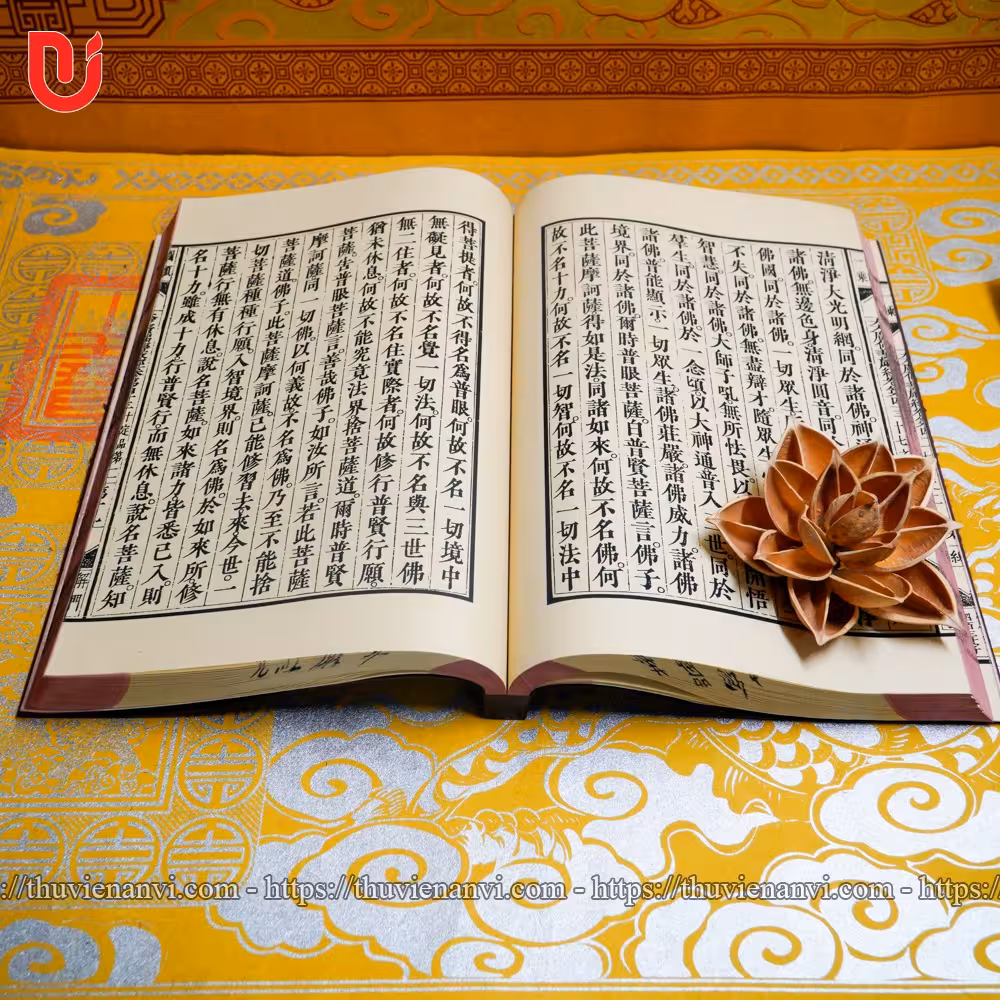 清淨大光明網。同於諸佛。神
諸佛無邊色身清淨圓音。同
佛國同於諸佛。一切眾生
不失同於諸佛。無盡辯才。隨眾生 開悟
智慧。同於諸佛。大師子吼。無所怯畏。以
羣生。同於諸佛。於一念頃。以大神通普入 世。同於
諸佛。普能顯示一切眾生。諸佛莊嚴。諸佛威力。諸佛
境界。同於諸佛。爾時普眼菩薩。白普賢菩薩言。佛子。
此菩薩摩訶薩。得如是法。同諸如來。何故不名佛。何
故不名十力。何故不名一切智。何故不名一切法中
得菩提者。何故不得名為普眼。何故不名一切境中
無礙見者。何故不名覺一切法。何故不名與三世佛
無二住者。何故不名住實際者。何故修行普賢行願。
猶未休息。何故不能究竟法界捨菩薩道。爾時普賢
菩薩。告普眼菩薩言。善哉佛子。如汝所言。若此菩薩
摩訶薩。同一切佛。以何義故。不名為佛。乃至不能捨
菩薩道。佛子。此菩薩摩訶薩。已能修習去來今世。一
切菩薩種種行願。入智境界。則名為佛。於如來所。修
菩薩行。無有休息。說名菩薩。如來諸力。皆悉已入。則
名十力。雖成十力。行普賢行。而無休息。說名菩薩。知
://thuvienanvi.com - https://thuvienanvi.com - https://thuvienanvi.com - https://